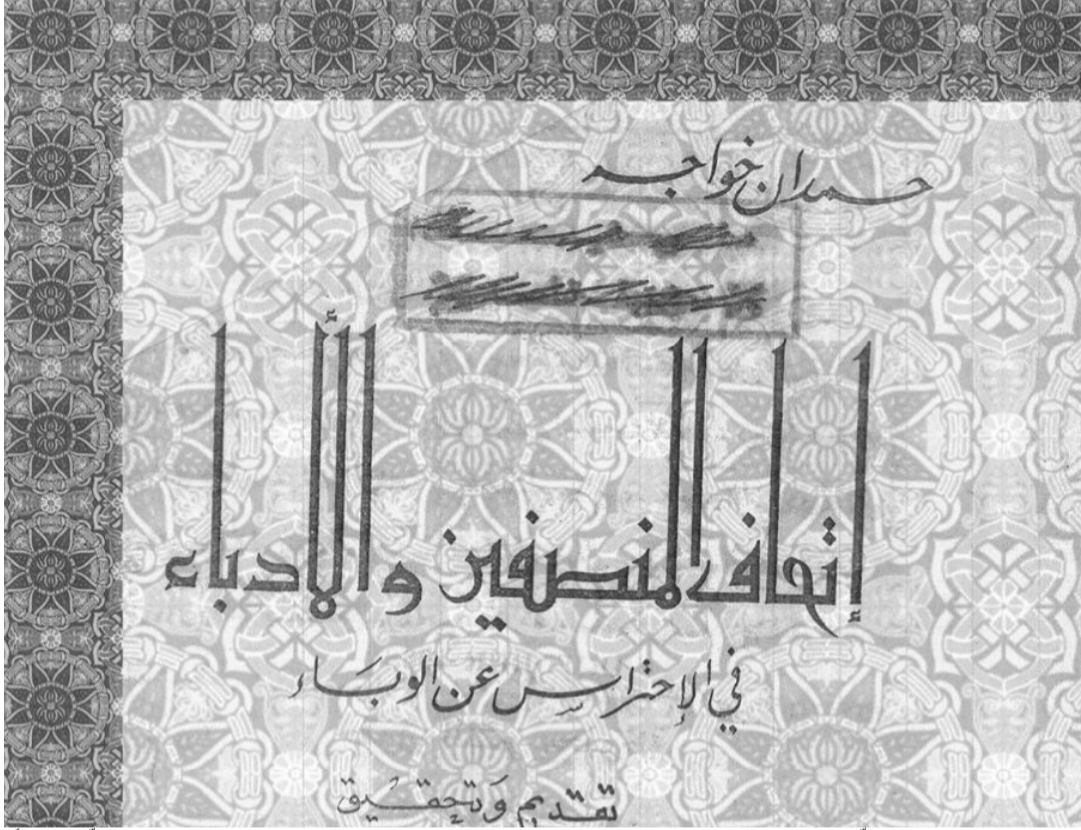 حمدان خواجه
إتحاف المنصفين والأدباء
في الإحتراس عن الوباء
تقديم وتحقيق